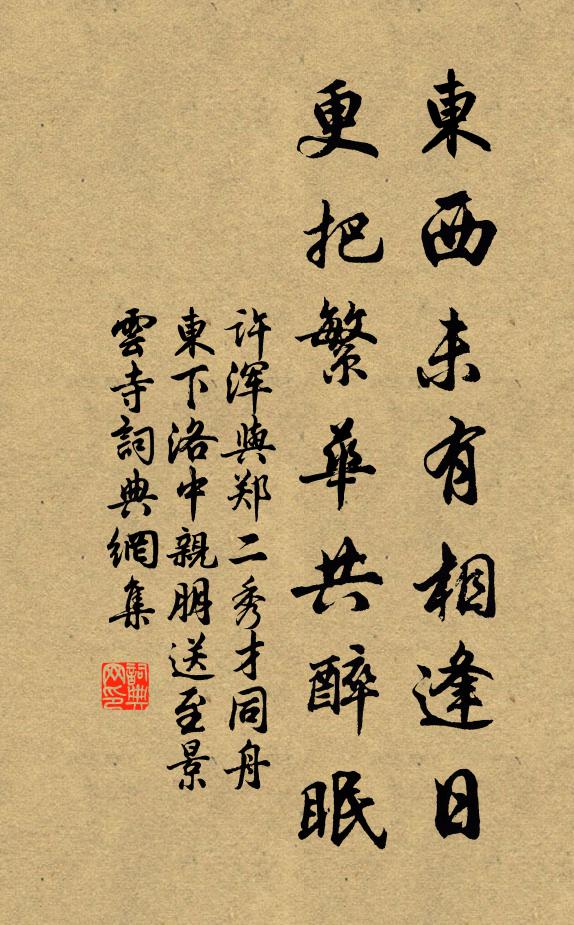 東西未有相逢日
更把繁華共醉眠
許渾與鄭二秀才同舟
東下洛中親朋送至景
雲寺詞典網集
詞典
网印